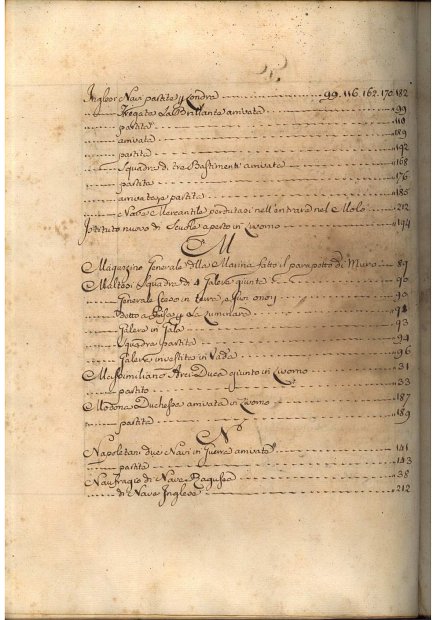 Inglesi Navi partite p Londra 99. 116. 162. 170. 182
Fregata La Brillante arivata 99
partita 118
arivata 189
partita 192
Squadra di tre Bastimenti arivata 168
partita 176
arivata e partita 185
Nave Mercantile perdutasi nell'entrare nel Molo 212
Istituto nuovo di Scuole aperto in Livorno 194
M
Magazzino Generale della Marina fatto il parapetto di Muro 89
Maltesi Squadra di 4 Galere giunte 90
Generale sceso in terra, e suoi onori 90
detto a Pisa p La Luminara 92
Galere in Gala 93
Squadra partita 94
Galera investita in Vada 96
Massimiliano Arci Duca giunto in Livorno 31
partito 33
Modona Duchessa arrivata in Livorno 187
partita 189
N
Napoletani due Navi in Guerra arivate 141
partite 143
Naufragio di Nave Ragusea 38
di Nave Inglese 212